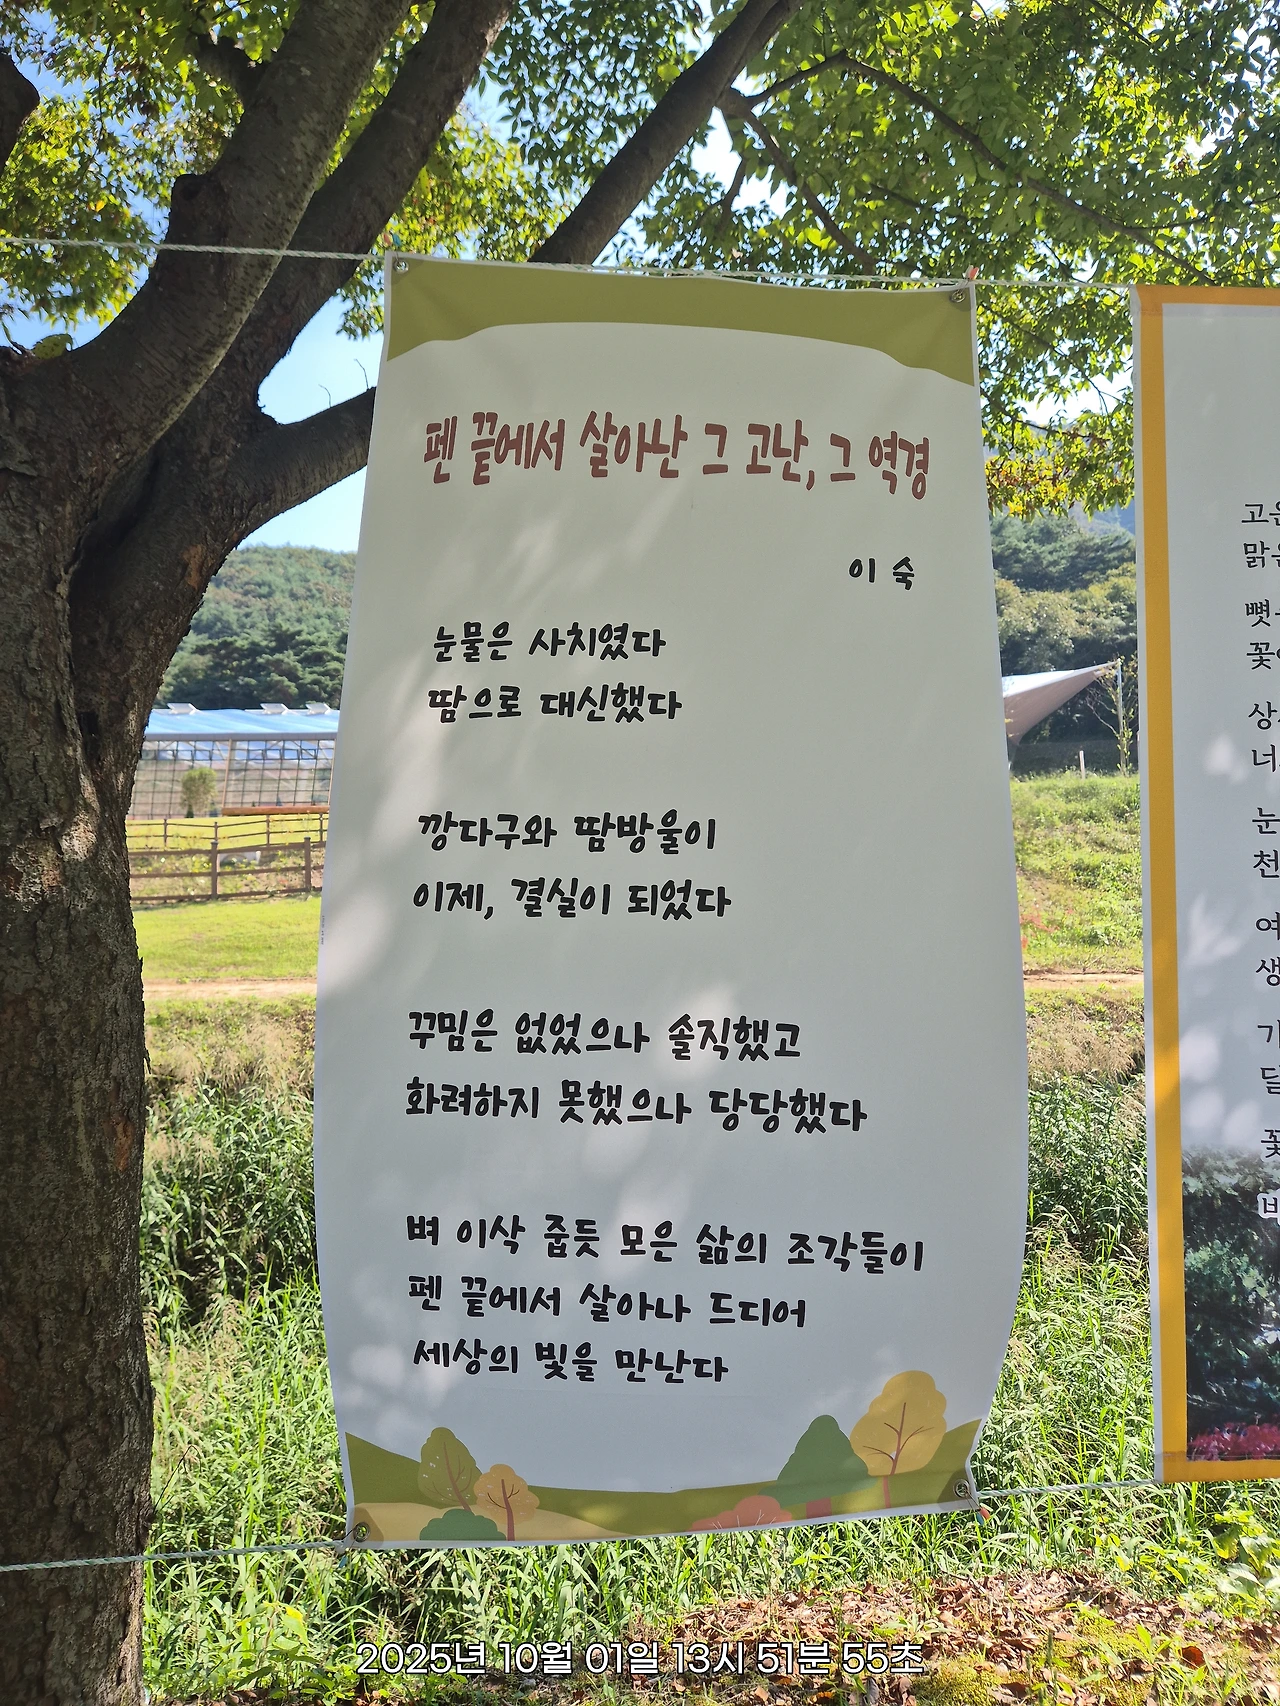 펜 끝에서 살아난 그 고난, 그 역경
이 숙
눈물은 사치였다
땀으로 대신했다
깡다구와 땀방울이
이제, 결실이 되었다
꾸밈은 없었으나 솔직했고
화려하지 못했으나 당당했다
벼 이삭 줍듯 모은 삶의 조각들이
펜 끝에서 살아나 드디어
세상의 빛을 만난다
고운
맑은
뼛
꽃
상
너
눈
천
여
생
기
달
꽃
2025년 10월 01일 13시 51분 55초